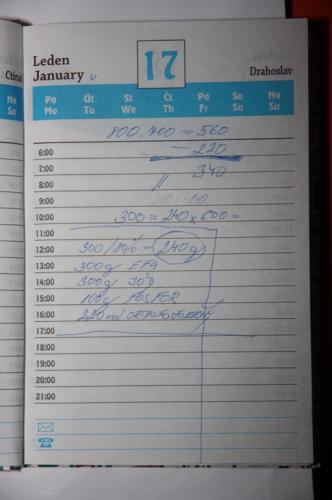 Leden
January
17
Drahoslav
Po Út St Čt Pá So Ne
Mo Tu We Th Fr Sa Su
800.700 = 560
6:00 - 220
7:00 340
8:00 //
9:00
10:00 300 = 240 x 600 =
11:00
12:00 300/80% = 240g
13:00 300g EFA
14:00 300g JÓD
15:00 100g FOSFOR
16:00 220ml
17:00
18:00
19:00
20:00
21:00